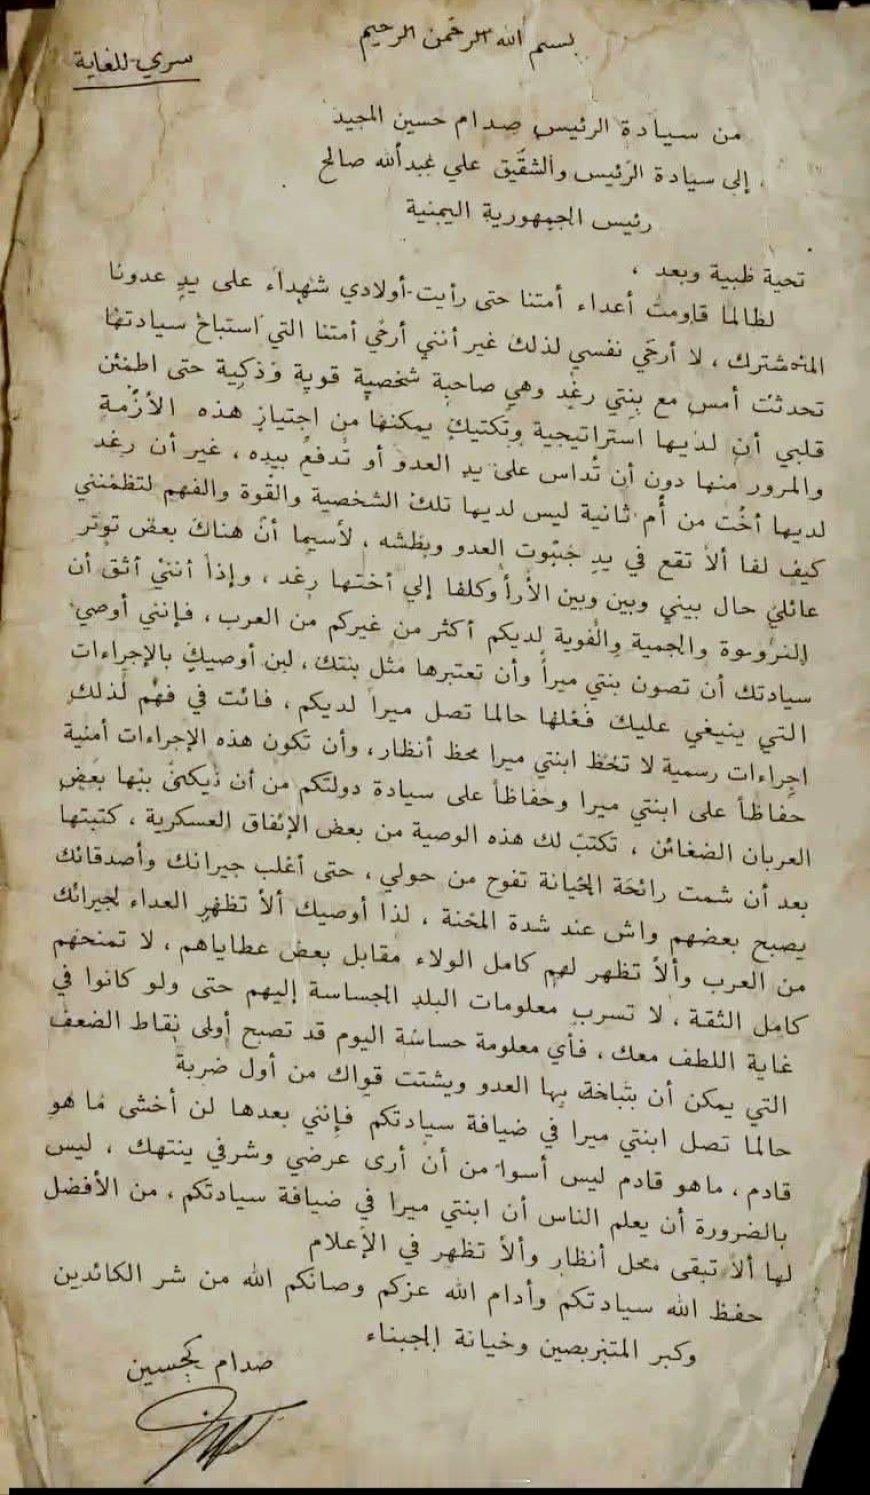 بسم الله الرحمن الرحيم
سري للغاية
من سيادة الرئيس صدام حسين المجيد
إلى سيادة الرئيس والشقيق علي عبدالله صالح
رئيس الجمهورية اليمنية
تحية طيبة وبعد ،
لطالما قاومت أعداء أمتنا حتى رأيت أولادي شهداء على يد عدونا
، لا أرثي نفسي لذلك غير أنني أرثي أمتنا التي استباح سيادتها
تحدثت أمس مع بنتي رغد وهي صاحبة شخصية قوية وذكية حتى اطمئن
قلبي أن لديها استراتيجية وتكتيك يمكنها من اجتياز هذه الأزمة
والمرور منها دون أن تُداس على يد العدو أو تُدفع بيده ، غير أن رغد
لديها أخت من أم ثانية ليس لديها تلك الشخصية والقوة والفهم
كيف لفا ألا تقع في يد العدو ، لأسيما أن هناك بعض توتر
عائلي حال بيني وبين وبين إلى أختها رغد ، وإذا أنني أثق أن
لديكم أكثر من غيركم من العرب ، فإنني أوصي
سيادتك أن تصون بنتي ميرا وأن تعتبرها مثل بنتك ، لبن أوصيك بالإجراءات
التي ينبغي عليك فعلها حالما تصل ميرا لديكم ، فائت في فهم لذلك
إجراءات رسمية لا ابنتي ميرا محظ أنظار ، وأن تكون هذه الإجراءات أمنية
حفاظاً على ابنتي ميرا وحفاظاً على سيادة دولتكم من أن بنها بعض
العربان الضغائن ، تكتب لك هذه الوصية من بعض الإنفاق العسكرية ، كتبتها
بعد أن شمت رائحة الخيانة تفوح من حولي ، حتى أغلب جيرانك وأصدقائك
يصبح بعضهم واش عند شدة المحنة ، لذا أوصيك ألا تظهر العداء لجيرانك
من العرب وألا تظهر لهم كامل الولاء مقابل بعض عطاياهم ، لا تمنحهم
كامل الثقة ، لا تسرب معلومات البلد الحساسة إليهم حتى ولو كانوا في
غاية اللطف معك ، فأي معلومة حساسة اليوم قد تصبح أولى نقاط الضعف
التي يمكن أن بها العدو ويشتت قواك من أول ضربة
حالما تصل ابنتي ميرا في ضيافة سيادتكم فإنني بعدها لن أخشى ما هو
قادم ، ماهو قادم ليس أسوأ من أن أرى عرضي وشرفي ينتهك ، ليس
بالضرورة أن يعلم الناس أن ابنتي ميرا في ضيافة سيادتكم ، من الأفضل
لها ألا تبقى محل أنظار وألا تظهر في الإعلام
حفظ الله سيادتكم وأدام الله عزكم وصانكم الله من شر الكائدين
وكبر المتبربصين وخيانة الجبناء
صدام حسين